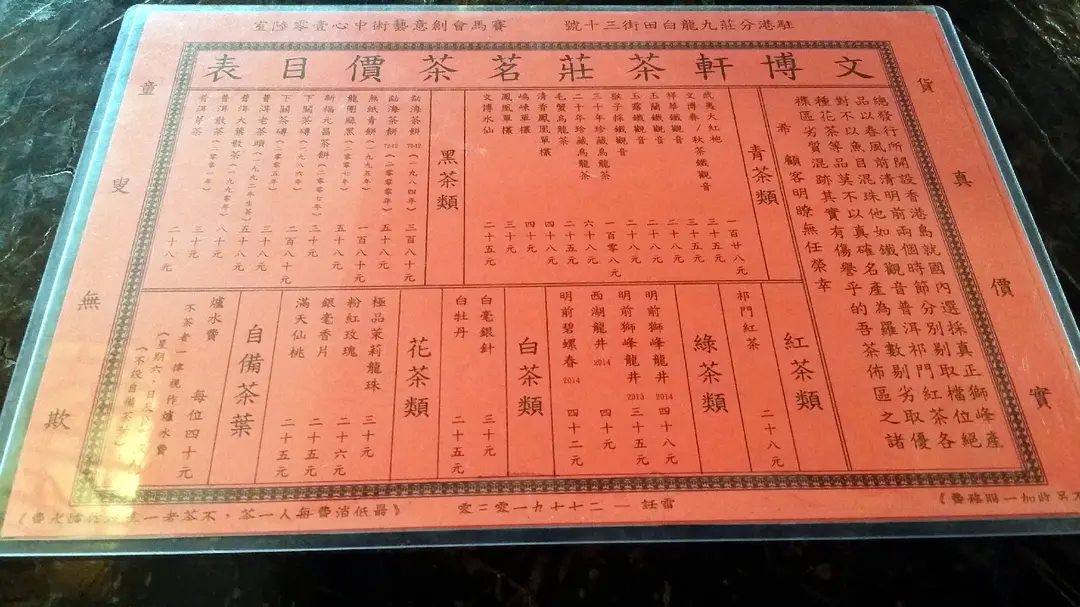 駐港分莊九龍白田街三十號 賽馬會創意藝術中心壹零陸室
文博軒茶莊茗茶價目表
貨真價實
總發行所開設香港島就國內選採真正獅峰產
品以春風前清明前兩個時節分別剔取檔位絕
對不以魚目混珠他如鐵觀音普洱祁門紅茶各
種花茶等品莫不以真確名產為羅數剔劣取優
區劣質混跡其實有傷譽乎的吾茶佈區之諸
希 顧客明瞭無任榮幸
青茶類
武夷大紅袍 一百廿八元
文博春/秋茶鐵觀音 三十五元
祥華鐵觀音 三十五元
五蘭鐵觀音 二十八元
玉露鐵觀音 二十八元
猴子採鐵觀音 一百零八元
三十年珍藏烏龍茶 六十八元
二十年珍藏烏龍茶
毛蟹烏龍茶
清香鳳凰單欉
單欉
鳳凰單欉 三十元
文博水仙 二十五元
黑茶類
勐海茶餅 7542 (一九八四年) 三百八十元
勐海茶餅 7542 (二零零零年) 八十元
無紙青餅 (一九九五年) 一百八十元
龍團 黑 (二零零七年) 五十八元
新福元昌茶餅 (二零零七年) 三十元
下關茶磚 (一九八六年) 二百八十元
下關茶磚 (二零零五年) 三十元
普洱老茶頭 (一九九二年生茶) 五十八元
普洱大葉散茶 (一九九零年) 八十元
普洱散茶 (二零零一年)
普洱芽茶 二十八元
紅茶類
祁門紅茶 二十八元
綠茶類
明前獅峰龍井 2014 四十八元
明前獅峰龍井 2013 三十元
西湖龍井 2014 四十元
明前碧螺春 2014 四十二元
白茶類
白毫銀針 三十元
白牡丹 二十五元
花茶類
極品茉莉龍珠 三十元
粉紅玫瑰 二十六元
銀毫香片 二十五元
滿天仙桃 二十五元
自備茶葉
爐水費 每位四十元
不茶者一律視作爐水費
(星期六、日及
(不設自備茶
童叟無欺
雷話 — 二七七一九零二零
《最低消費每人一茶,不茶者一
另收加一服務費》